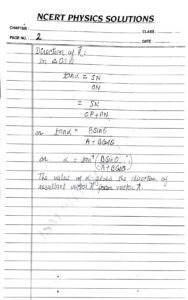 NCERT PHYSICS SOLUTIONS
CHAPTER
CLASS
PAGE NO. 2
DATE
Direction of R⃗:
in Δ OSN
tanα = SN
ON
= SN
OP+PN
or tanα = BSinθ
A + BCosθ
or α = tan⁻¹ (BSinθ
A+BCosθ)
The value of α gives the direction of
resultant vector R⃗ from vector